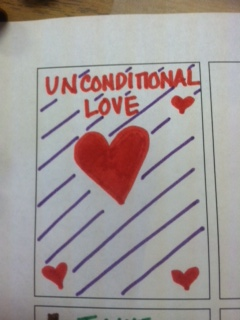 UNCONDITIONAL
LOVE